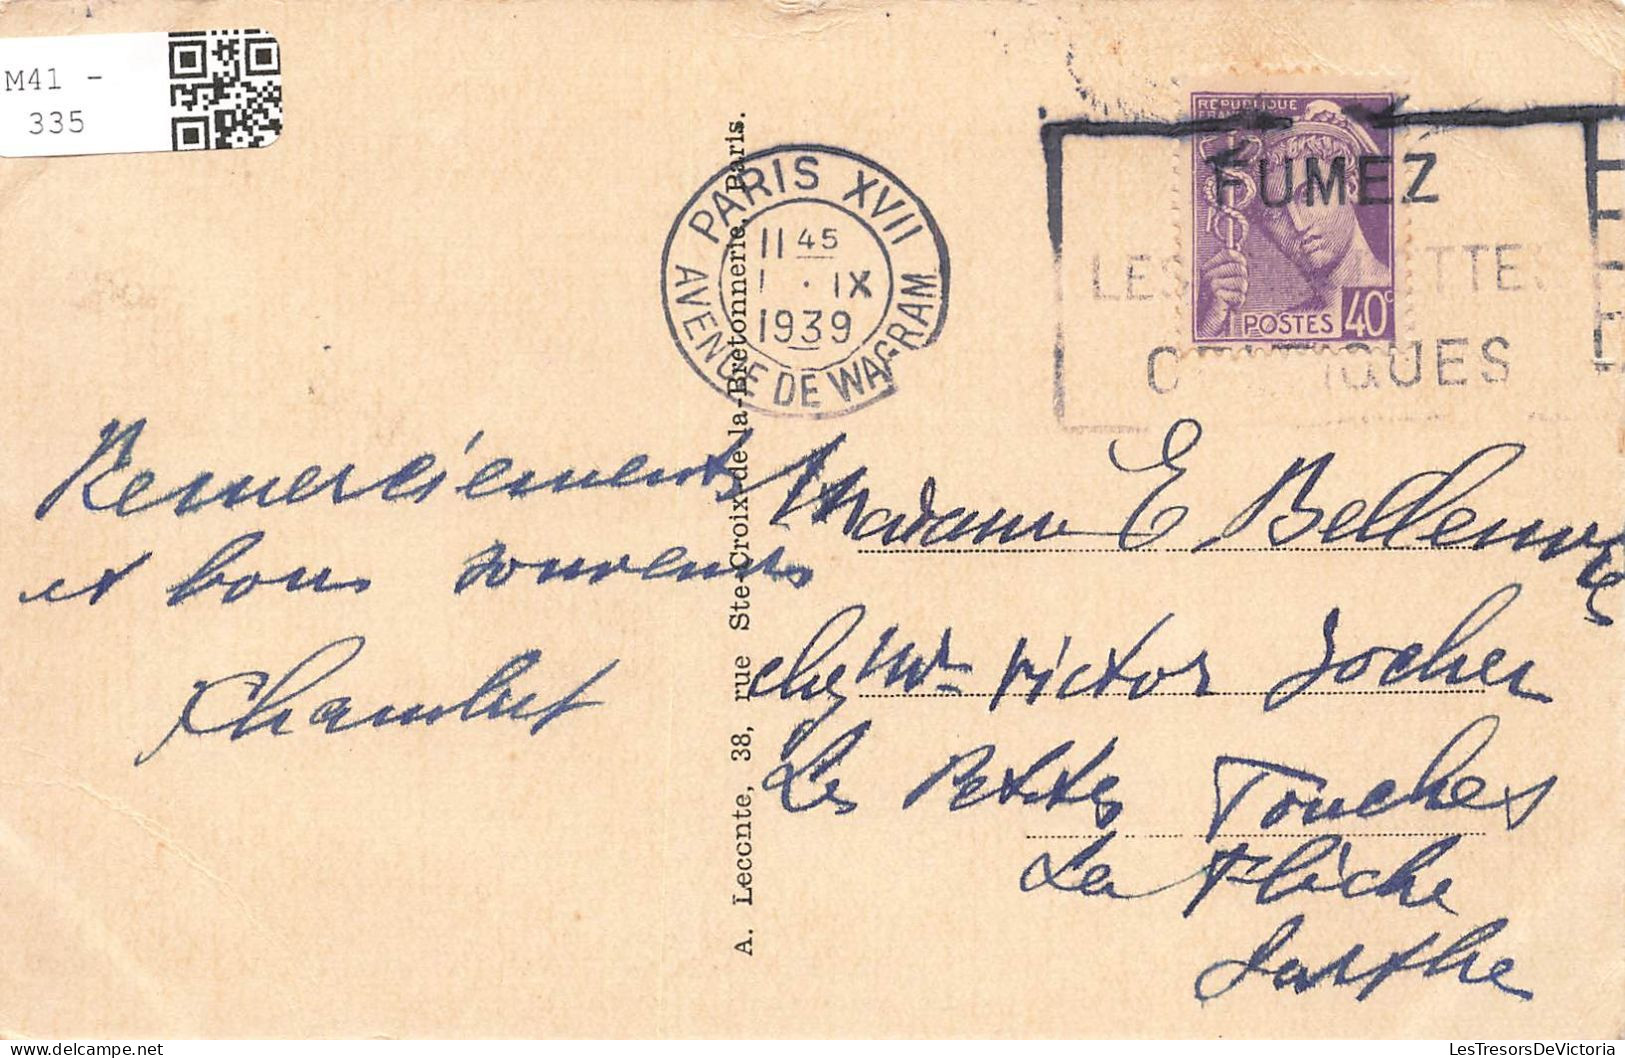 M41 -
335
RÉPUBLIQUE
FRANÇAISE
POSTES 40c
PARIS XVII
11 45
1 · IX
1939
AVENUE DE WAGRAM
FUMEZ
LES
UES
A. Leccnte, 38, rue Ste-Croix-de-la-Bretonnerie, Paris.
Remerciements
et bons souvenirs
Madame E
chez Mr Victor Jocher
Les Petites Touches
La Flèche
Sarthe
delcampe.net
LesTresorsDeVictoria